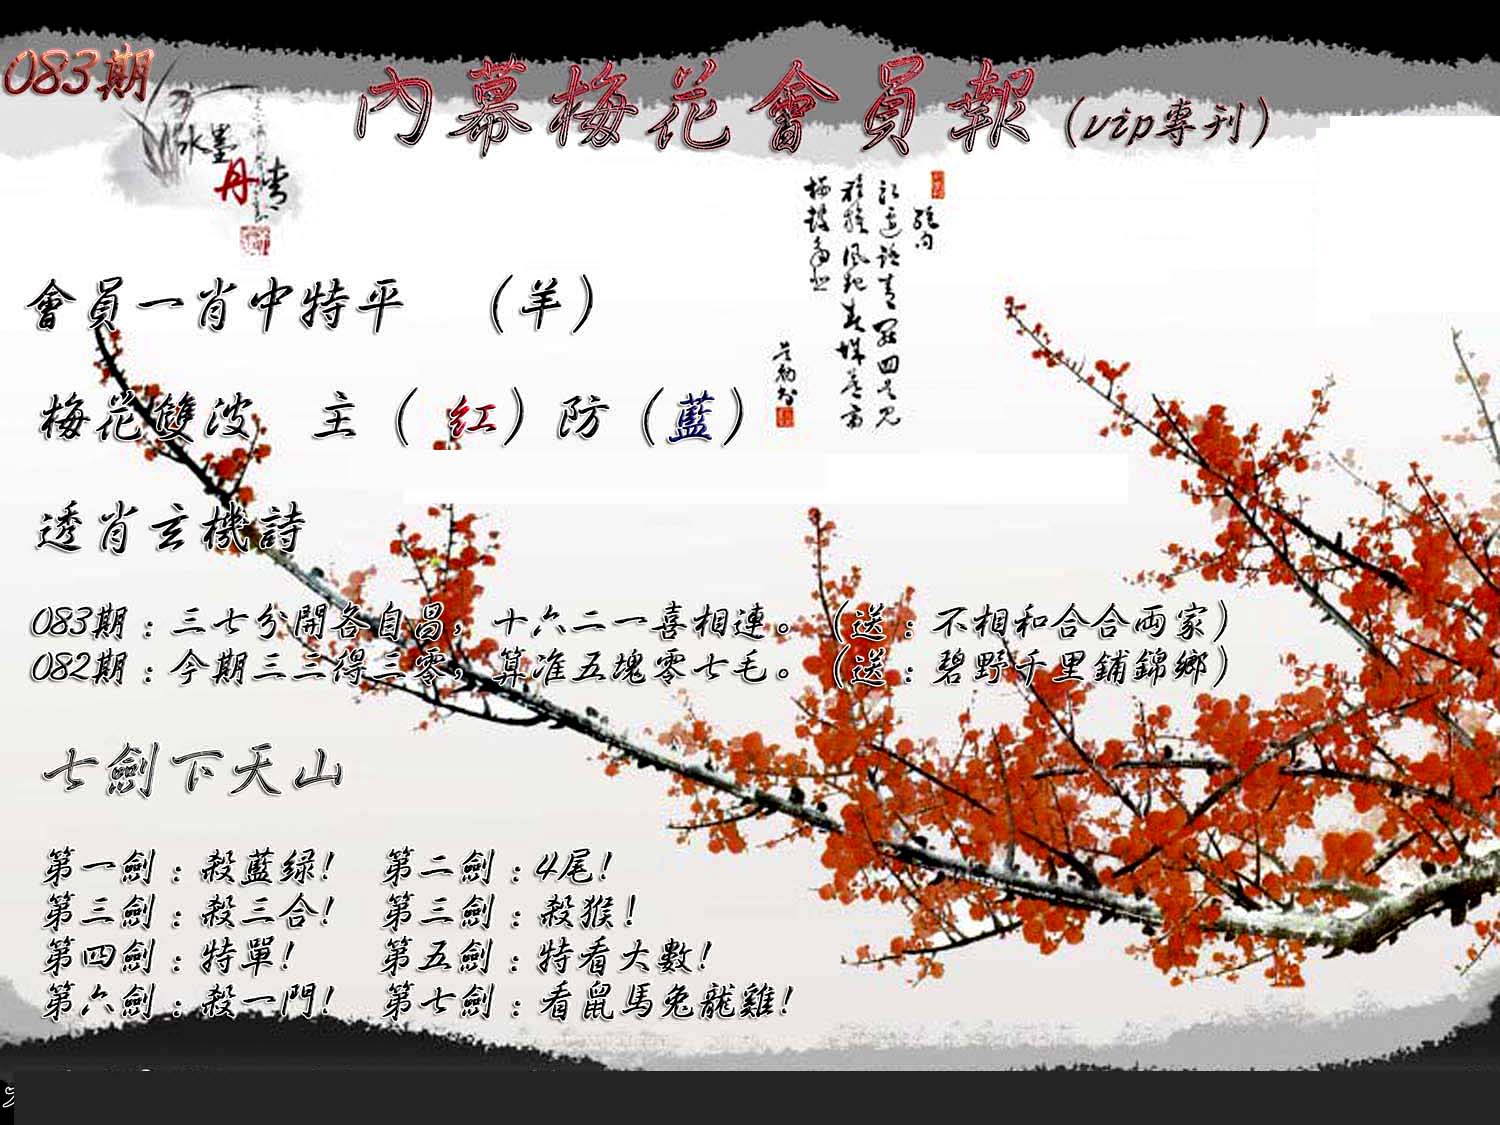 083期
內幕梅花會員報（vip專刊）
水墨
丹青
會員一肖中特平　（羊）
梅花雙波　主（紅）防（藍）
透肖玄機詩
083期：三七分開各自昌，十六二一喜相連。（送：不相和合合両家）
082期：今期三三得三零，算准五塊零七毛。（送：碧野千里鋪錦鄉）
七劍下天山
第一劍：殺藍绿！　第二劍：4尾！
第三劍：殺三合！　第三劍：殺猴！
第四劍：特單！　第五劍：特看大數！
第六劍：殺一門！　第七劍：看鼠馬兔龍雞！